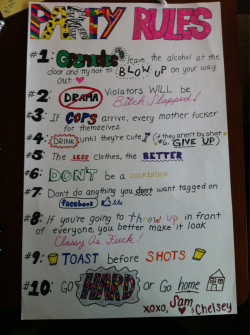 PARTY RULES
#1: Grenades leave the alcohol at the
door and try not to BLOW UP on your way
out
#2: DRAMA Violators WILL be
Bitch Slapped!
#3: If COPS arrive, every mother fucker
for themselves.
#4: DRINK until they're cute (if they aren't by shot
#6, GIVE UP)
#5: The LESS clothes, the BETTER
#6: DON'T be a cockblock
#7: Don't do anything you don't want tagged on
facebook like
#8: If you're going to throw up in front
of everyone, you better make it look
Classy As Fuck!
#9: TOAST before SHOTS
#10: GO HARD or Go home
xoxo, Sam
& Chelsey